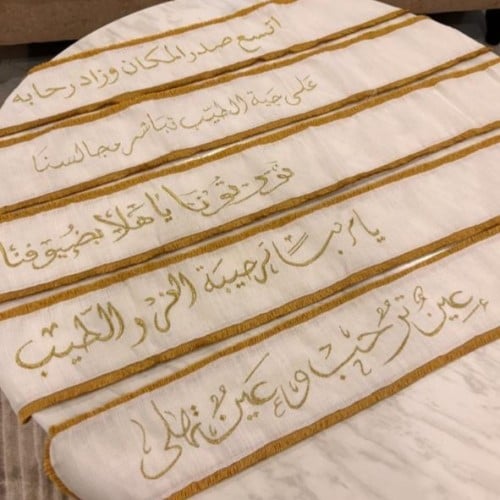 اتسع صدر المكان وزاد رحابه
على جية الطيّب تباشر مجالسنا
نوّرتونا يا هلا بضيوفنا
يا مرحبًا ترحيبة العز والطيب
عينٌ تُرحّب وعينٌ تهلّي